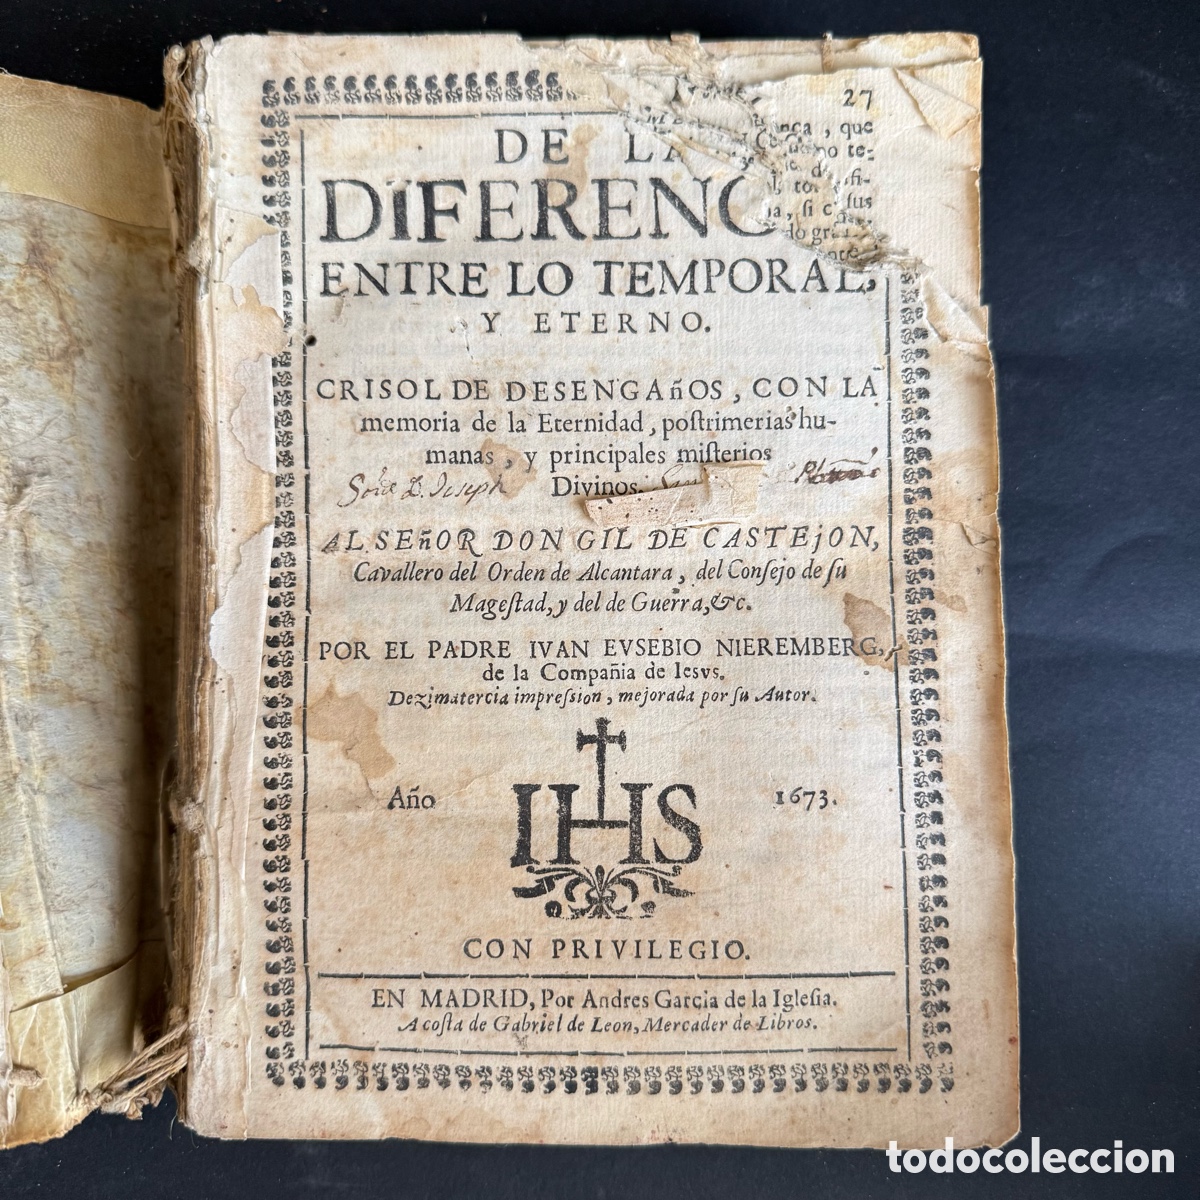 27
DE LA
DIFERENC
ENTRE LO TEMPORAL,
Y ETERNO.
CRISOL DE DESENGAñOS, CON LA
memoria de la Eternidad, poſtrimerias hu-
manas, y principales miſterios
Divinos.
AL SEñOR DON GIL DE CASTEjON,
Cavallero del Orden de Alcantara, del Conſejo de ſu
Mageſtad, y del de Guerra, &c.
POR EL PADRE IVAN EVSEBIO NIEREMBERG,
de la Compañia de Iesvs.
Dezimatercia impreſsion, mejorada por ſu Autor.
Año IHS 1673.
CON PRIVILEGIO.
EN MADRID, Por Andres Garcia de la Igleſia.
A coſta de Gabriel de Leon, Mercader de Libros.
todocoleccion